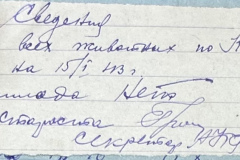 Сведения
всех животных по
на 15/I 43 г.
Нет
Староста
Секретарь